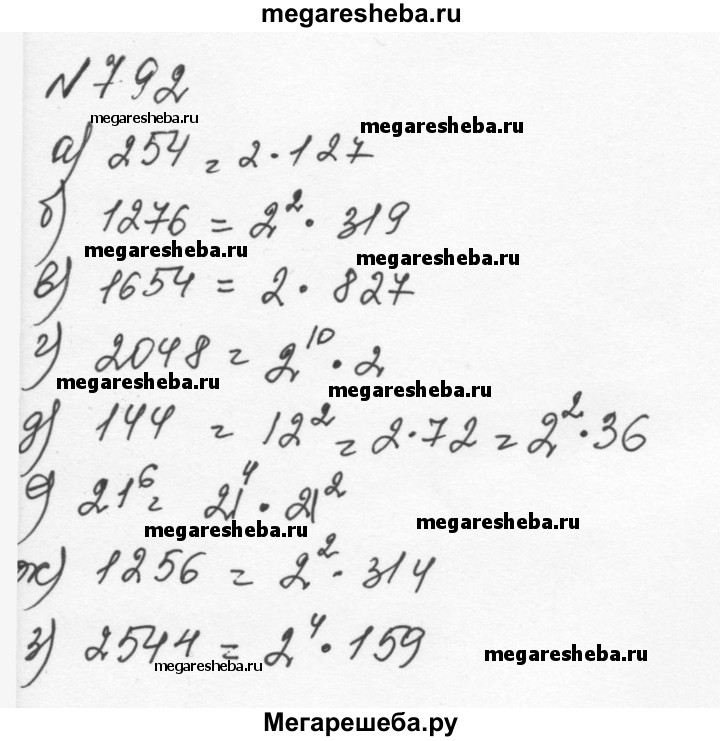 megaresheba.ru
N 792
megaresheba.ru
megaresheba.ru
а) 254 = 2 · 127
б) 1276 = 2² · 319
megaresheba.ru
megaresheba.ru
в) 1654 = 2 · 827
г) 2048 = 2¹⁰ · 2
megaresheba.ru
megaresheba.ru
д) 144 = 12² = 2 · 72 = 2² · 36
е) 21⁶ = 21⁴ · 21²
megaresheba.ru
megaresheba.ru
ж) 1256 = 2² · 314
з) 2544 = 2⁴ · 159
megaresheba.ru
megaresheba.ru
Мегарешеба.ру